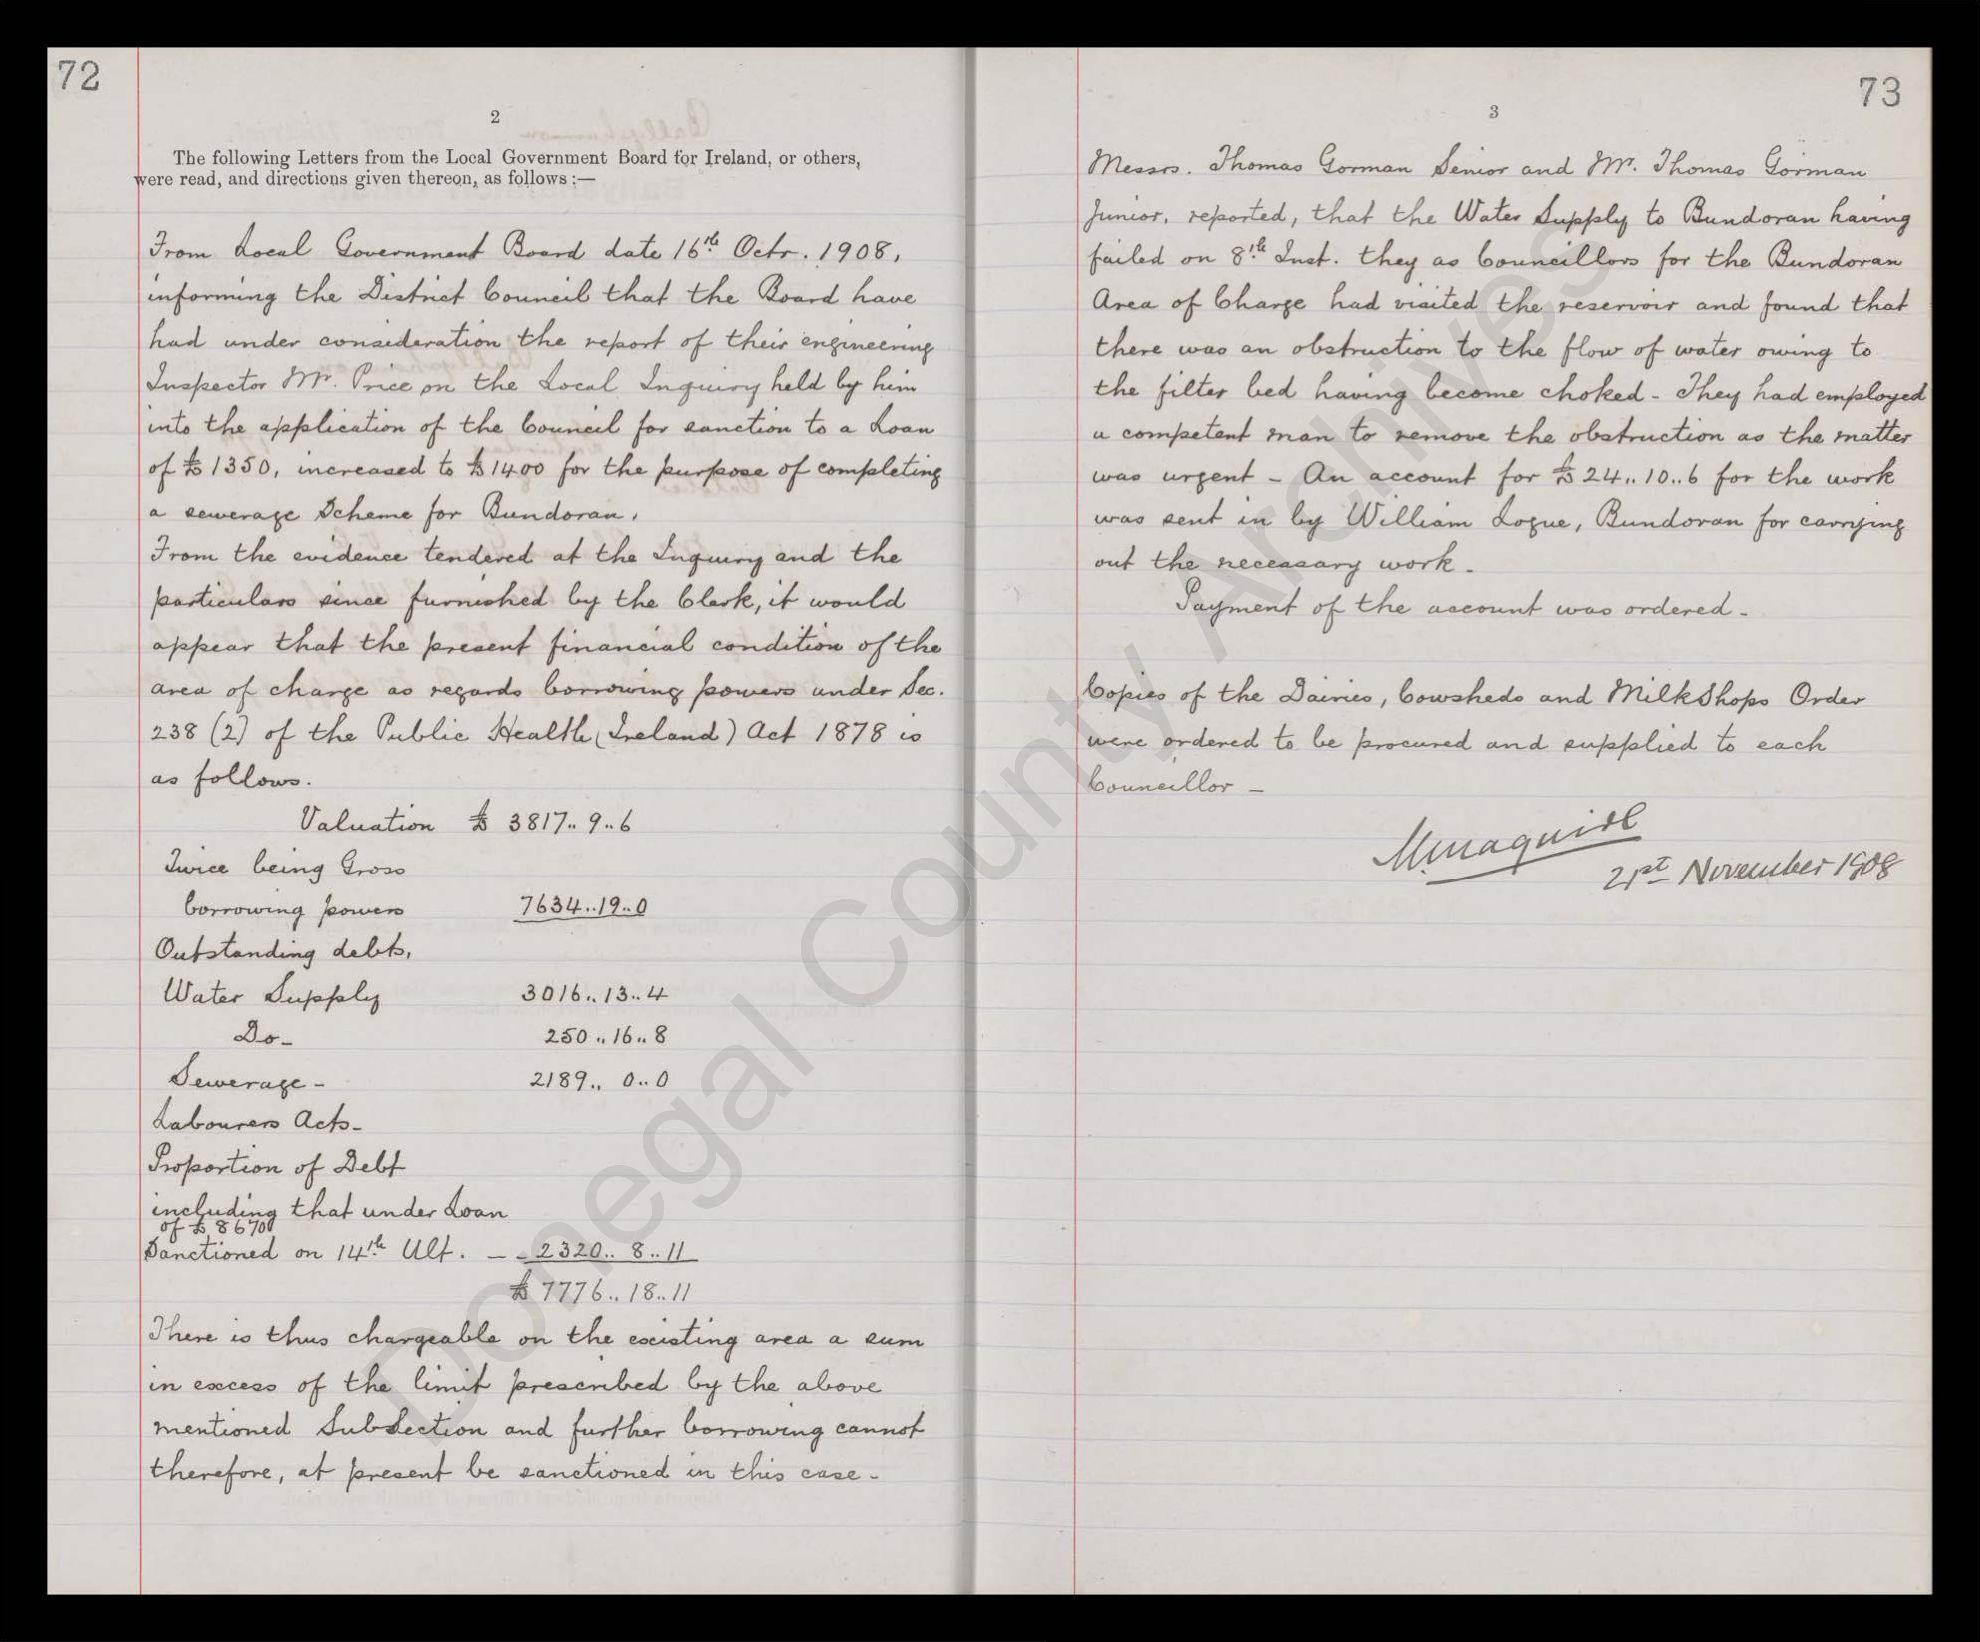 72
2
The following Letters from the Local Government Board for Ireland, or others,
were read, and directions given thereon, as follows :—
From Local Government Board date 16th Octr. 1908,
informing the District Council that the Board have
had under consideration the report of their engineering
Inspector Mr. Price on the Local Inquiry held by him
into the application of the Council for sanction to a Loan
of £1350, increased to £1400 for the purpose of completing
a sewerage Scheme for Bundoran.
From the evidence tendered at the Inquiry and the
particulars since furnished by the Clerk, it would
appear that the present financial condition of the
area of charge as regards borrowing powers under Sec.
238 (2) of the Public Health (Ireland) Act 1878 is
as follows.
Valuation £ 3817.. 9..6
Twice being Gross
borrowing powers 7634..19..0
Outstanding debts,
Water Supply 3016..13..4
Do- 250..16..8
Sewerage - 2189.. 0..0
Labourers Acts-
Proportion of Debt
including that under Loan
of £8670
Sanctioned on 14th Ult. - - 2320.. 8..11
£ 7776..18..11
There is thus chargeable on the existing area a sum
in excess of the limit prescribed by the above
mentioned SubSection and further borrowing cannot
therefore, at present be sanctioned in this case-
73
3
Messrs. Thomas Gorman Senior and Mr. Thomas Gorman
Junior, reported, that the Water Supply to Bundoran having
failed on 8th Inst. they as Councillors for the Bundoran
Area of Charge had visited the reservoir and found that
there was an obstruction to the flow of water owing to
the filter bed having become choked - They had employed
a competent man to remove the obstruction as the matter
was urgent - An account for £24..10..6 for the work
was sent in by William Logue, Bundoran for carrying
out the necessary work -
Payment of the account was ordered -
Copies of the Dairies, Cowsheds and MilkShops Order
were ordered to be procured and supplied to each
Councillor -
21st November 1908
Donegal County Archives